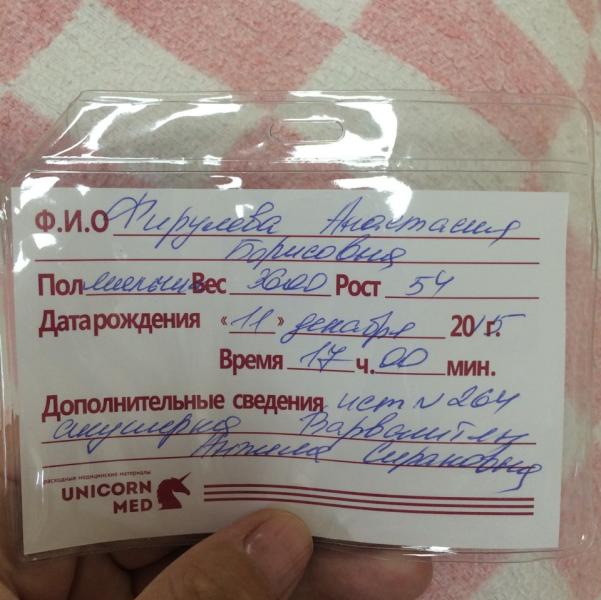 Ф.И.О Фирулева Анастасия
Борисовна
Пол мальчик Вес 3600 Рост 54
Дата рождения «11» декабря 2015 г.
Время 17 ч. 00 мин.
Дополнительные сведения ист № 264
акушерка
Анжела Сирановна
расходные медицинские материалы
UNICORN
MED